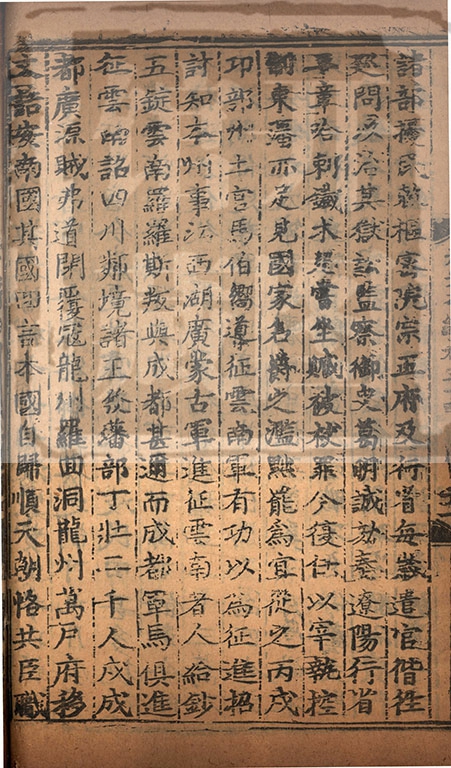 諸部擾民敕樞密院宗正府及行省每歲遣官偕往
廵問以治其獄訟監察御史葛明誠劾奏遼陽行省
平章哈剌鐵木兒嘗坐贓被杖罪今復任以宰執控
制東藩亦足見國家名爵之濫黜罷為宜從之丙戌
卭部州土官馬伯嚮導征雲南軍有功以為征進招
討知本州事江西湖廣蒙古軍進征雲南者人給鈔
五錠雲南羅羅斯叛與成都甚邇而成都軍馬俱進
征雲南詔四川鄰境諸王發藩部丁壯二千人戍成
都廣源賊弗道閉覆寇龍州羅回洞龍州萬戶府移
文詰安南國其國回言本國自歸順天朝恪共臣職